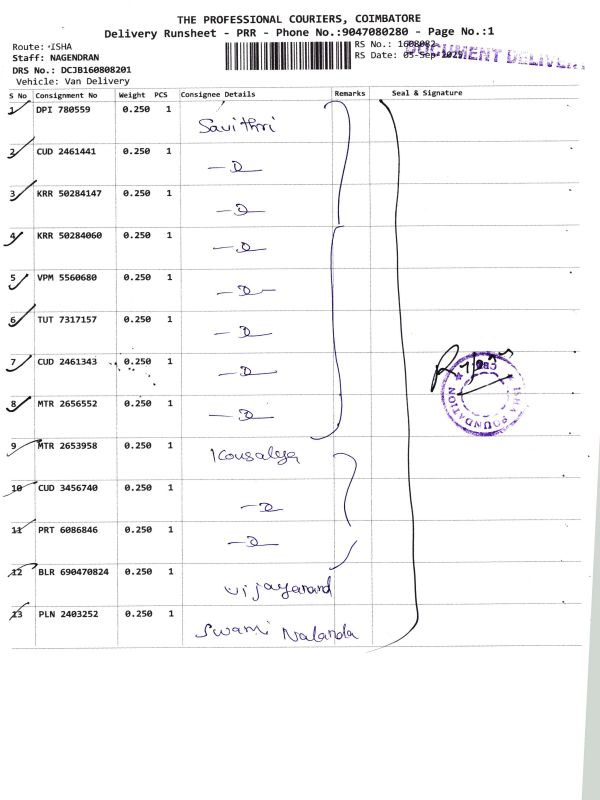 THE PROFESSIONAL COURIERS, COIMBATORE
Delivery Runsheet - PRR - Phone No.:9047080280 - Page No.:1
Route: ISHA
Staff: NAGENDRAN
DRS No.: DCJB160808201
Vehicle: Van Delivery
RS No.: 1608082
RS Date: 05-Sep-2025
DOCUMENT DELIVER
S No Consignment No Weight PCS Consignee Details Remarks Seal & Signature
1 DPI 780559 0.250 1 Savithri
2 CUD 2461441 0.250 1 —D—
3 KRR 50284147 0.250 1 —D—
4 KRR 50284060 0.250 1 —D—
5 VPM 5560680 0.250 1 —D—
6 TUT 7317157 0.250 1 —D—
7 CUD 2461343 0.250 1 —D—
8 MTR 2656552 0.250 1 —D—
9 MTR 2653958 0.250 1 Kousalya
10 CUD 3456740 0.250 1 —D—
11 PRT 6086846 0.250 1 —D—
12 BLR 690470824 0.250 1 Vijayanand
13 PLN 2403252 0.250 1 Swami Nalanda
ISHA FOUNDATION